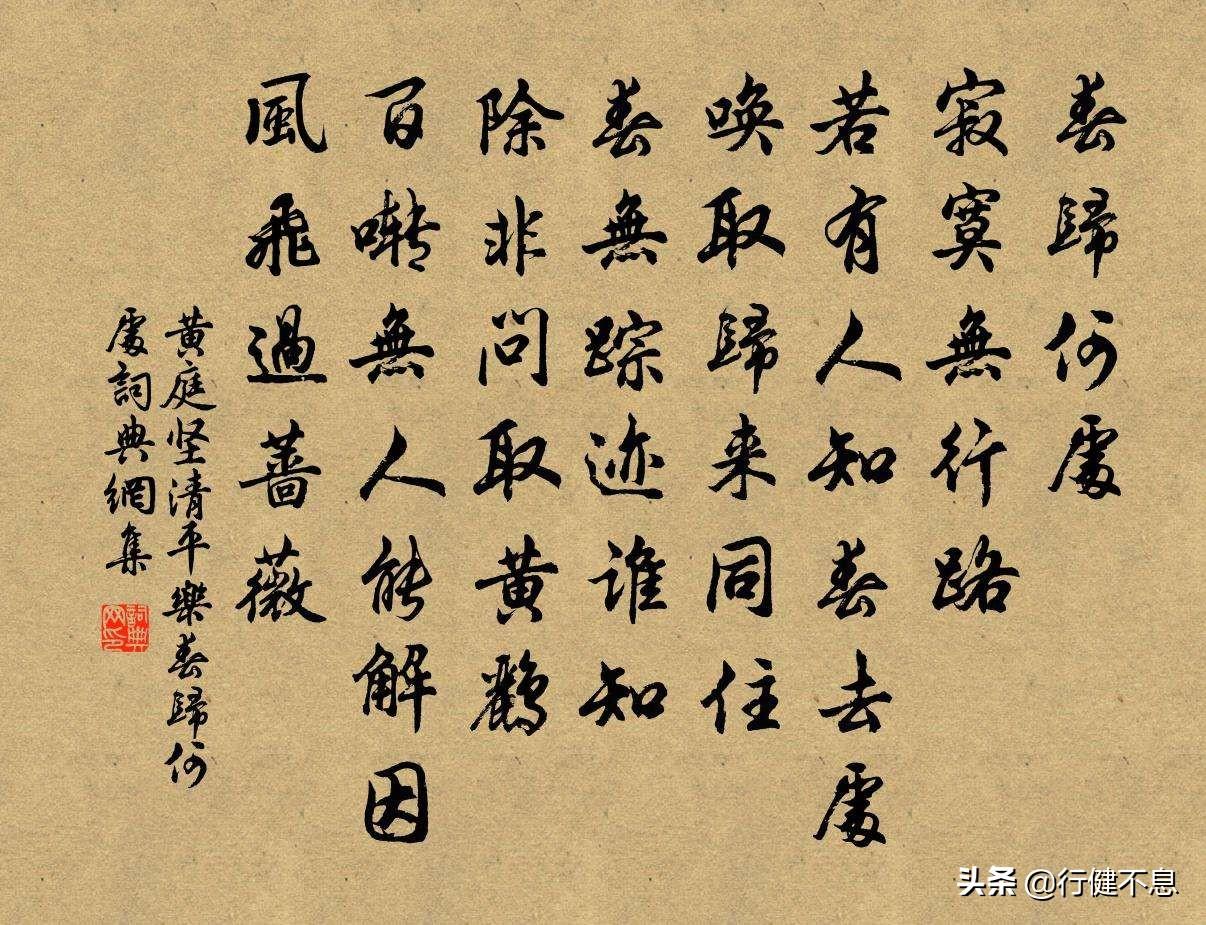 春歸何處
寂寞無行路
若有人知春去處
唤取歸来同住
春無踪迹誰知
除非問取黄鸝
百囀無人能解因
風飛過薔薇
黄庭坚清平樂春歸何
處詞典網集
詞典网印
头条 @行健不息